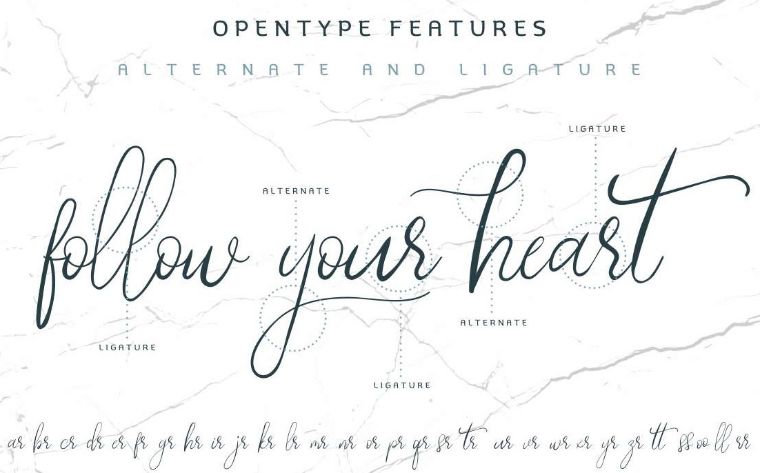 OPENTYPE FEATURES
ALTERNATE AND LIGATURE
LIGATURE
ALTERNATE
follow your heart
ALTERNATE
LIGATURE
LIGATURE
ar br cr dr er fr gr hr ir jr kr lr mr nr or pr qr sr tr ur vr wr xr yr zr tt ss oo ll rr